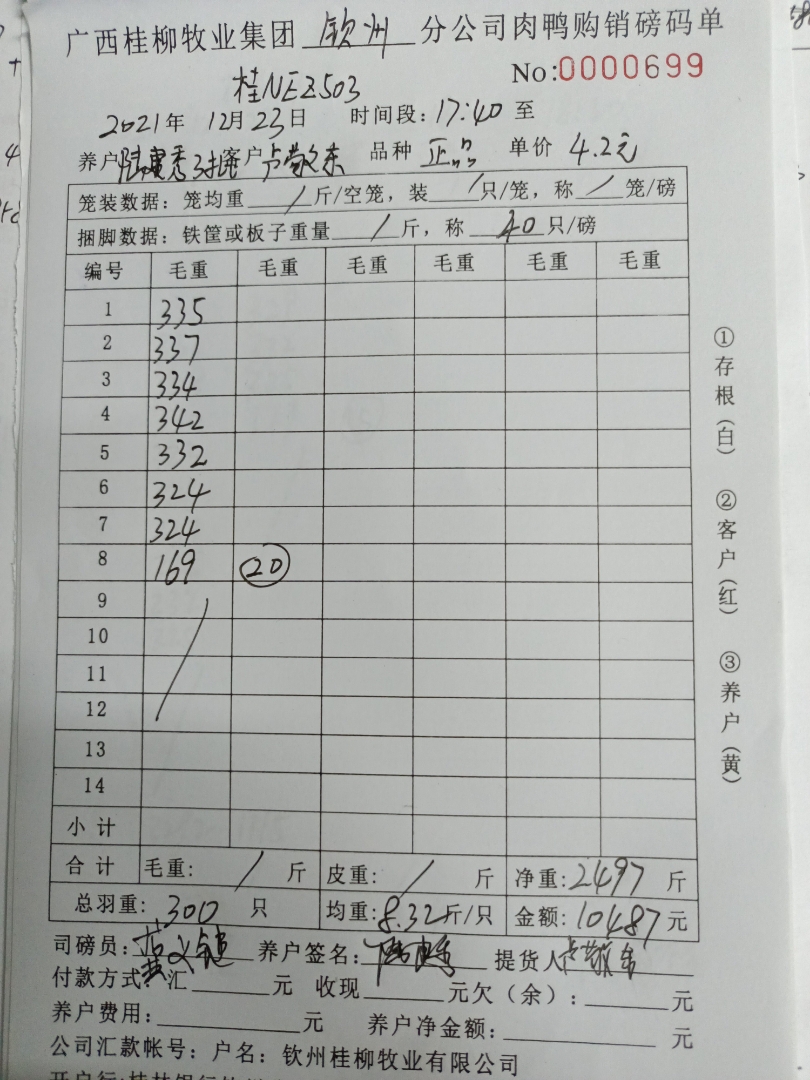 广西桂柳牧业集团 钦州 分公司肉鸭购销磅码单
No:0000699
桂NEZ503
2021年 12月23日 时间段:17:40 至
养户 客户 品种 正品 单价 4.2元
笼装数据:笼均重 / 斤/空笼,装 / 只/笼,称 / 笼/磅
捆脚数据:铁筐或板子重量 / 斤,称 40 只/磅
编号 毛重 毛重 毛重 毛重 毛重 毛重
1 335
2 337
3 334
4 342
5 332
6 324
7 324
8 169 20
9
10
11
12
13
14
小计
合计 毛重: / 斤 皮重: / 斤 净重:2497 斤
总羽重:300 只 均重:8.32斤/只 金额:10487元
司磅员: 养户签名: 提货人
付款方式:汇 元 收现 元欠(余): 元
养户费用: 元 养户净金额: 元
公司汇款帐号:户名:钦州桂柳牧业有限公司
①存根(白) ②客户(红) ③养户(黄)